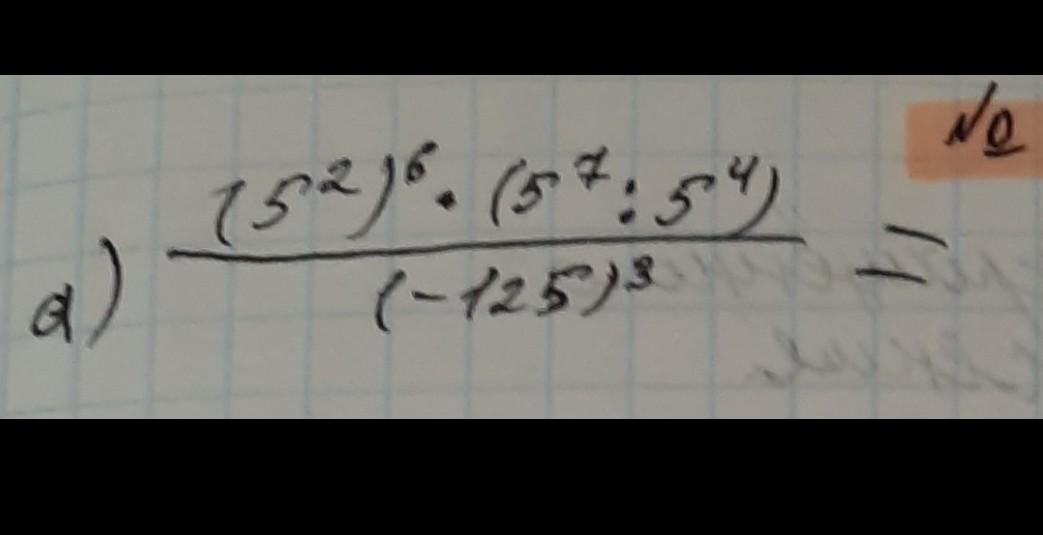 №
а) (5²)⁶ · (5⁷ : 5⁴) / (-125)³ =